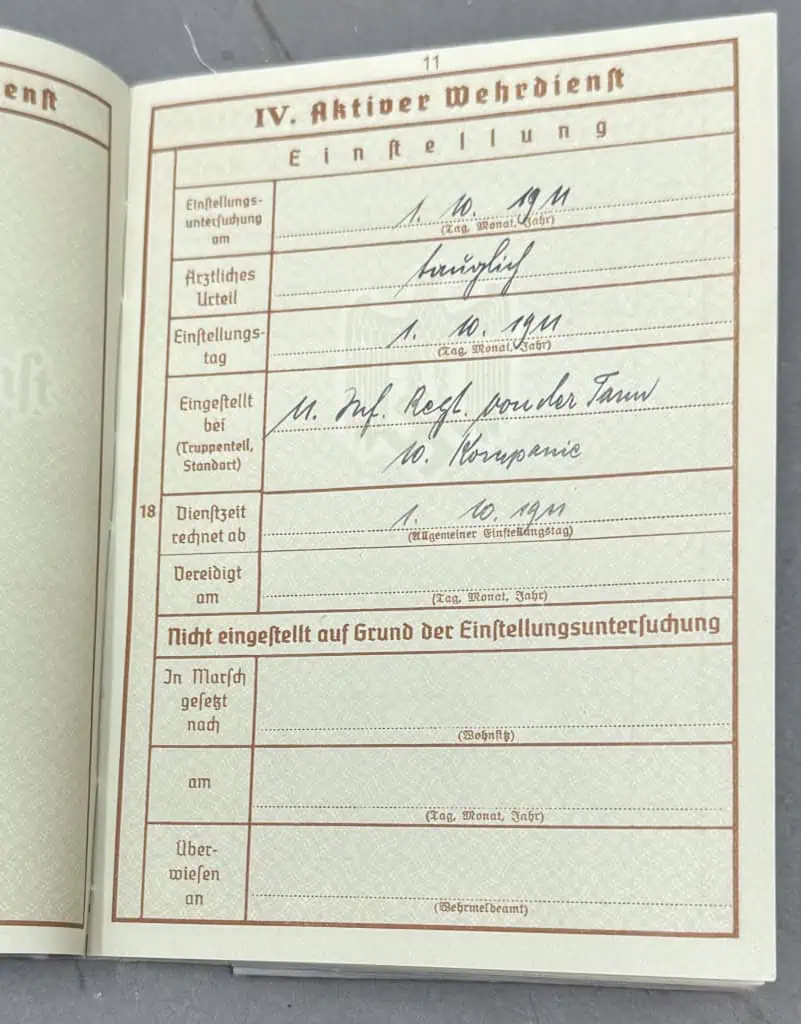 enst
11
IV. Aktiver Wehrdienst
Einstellung
Einstellungs-
untersuchung
am
1. 10. 1911
(Tag, Monat, Jahr)
Ärztliches
Urteil
tauglich
Einstellungs-
tag
1. 10. 1911
(Tag, Monat, Jahr)
Eingestellt
bei
(Truppenteil,
Standort)
11. Inf. Regt. von der Tann
10. Kompanie
18
Dienstzeit
rechnet ab
1. 10. 1911
(Allgemeiner Einstellungstag)
Vereidigt
am
(Tag, Monat, Jahr)
Nicht eingestellt auf Grund der Einstellungsuntersuchung
In Marsch
gesetzt
nach
(Wohnsitz)
am
(Tag, Monat, Jahr)
Über-
wiesen
an
(Wehrmeldeamt)